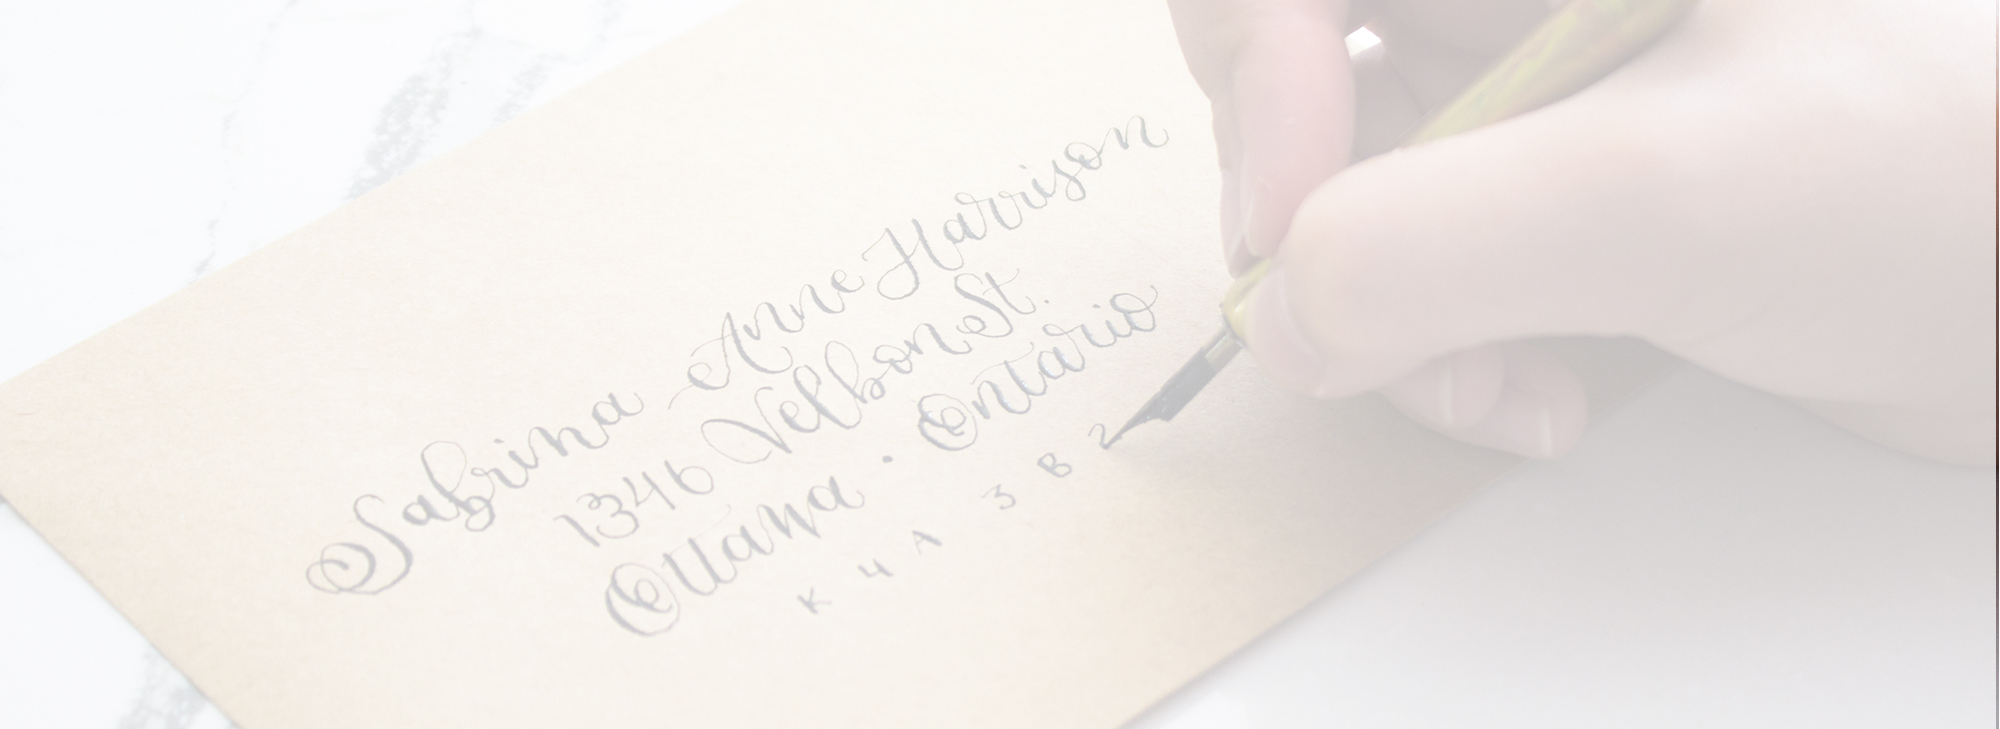 Sabrina Anne Harrison
1346 Velbon St.
Ottawa · Ontario
K4A 3B2